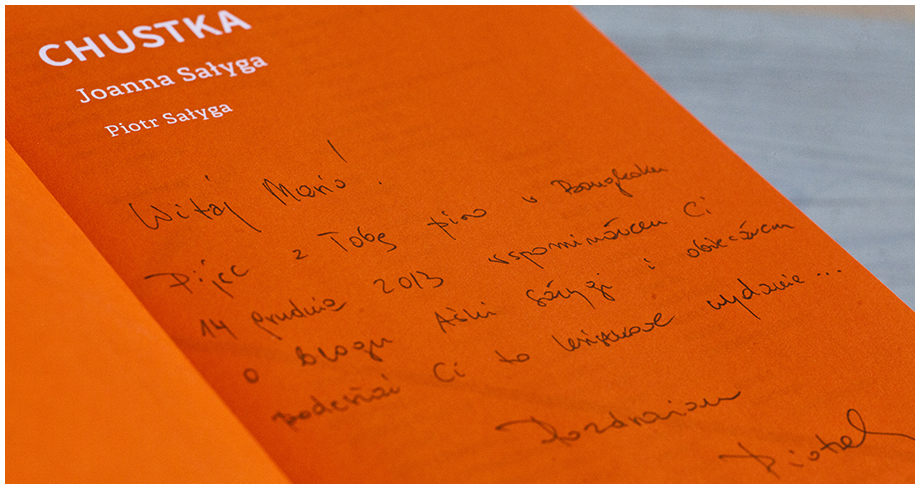 CHUSTKA
Joanna Sałyga
Piotr Sałyga
Witaj Mario!
Pijąc z Tobą piwo w Bangkoku
14 grudnia 2013 wspominałem Ci
o blogu Aśki Sałygi i obiecałem
podesłać Ci to książkowe wydanie...
Pozdrawiam
Piotrek